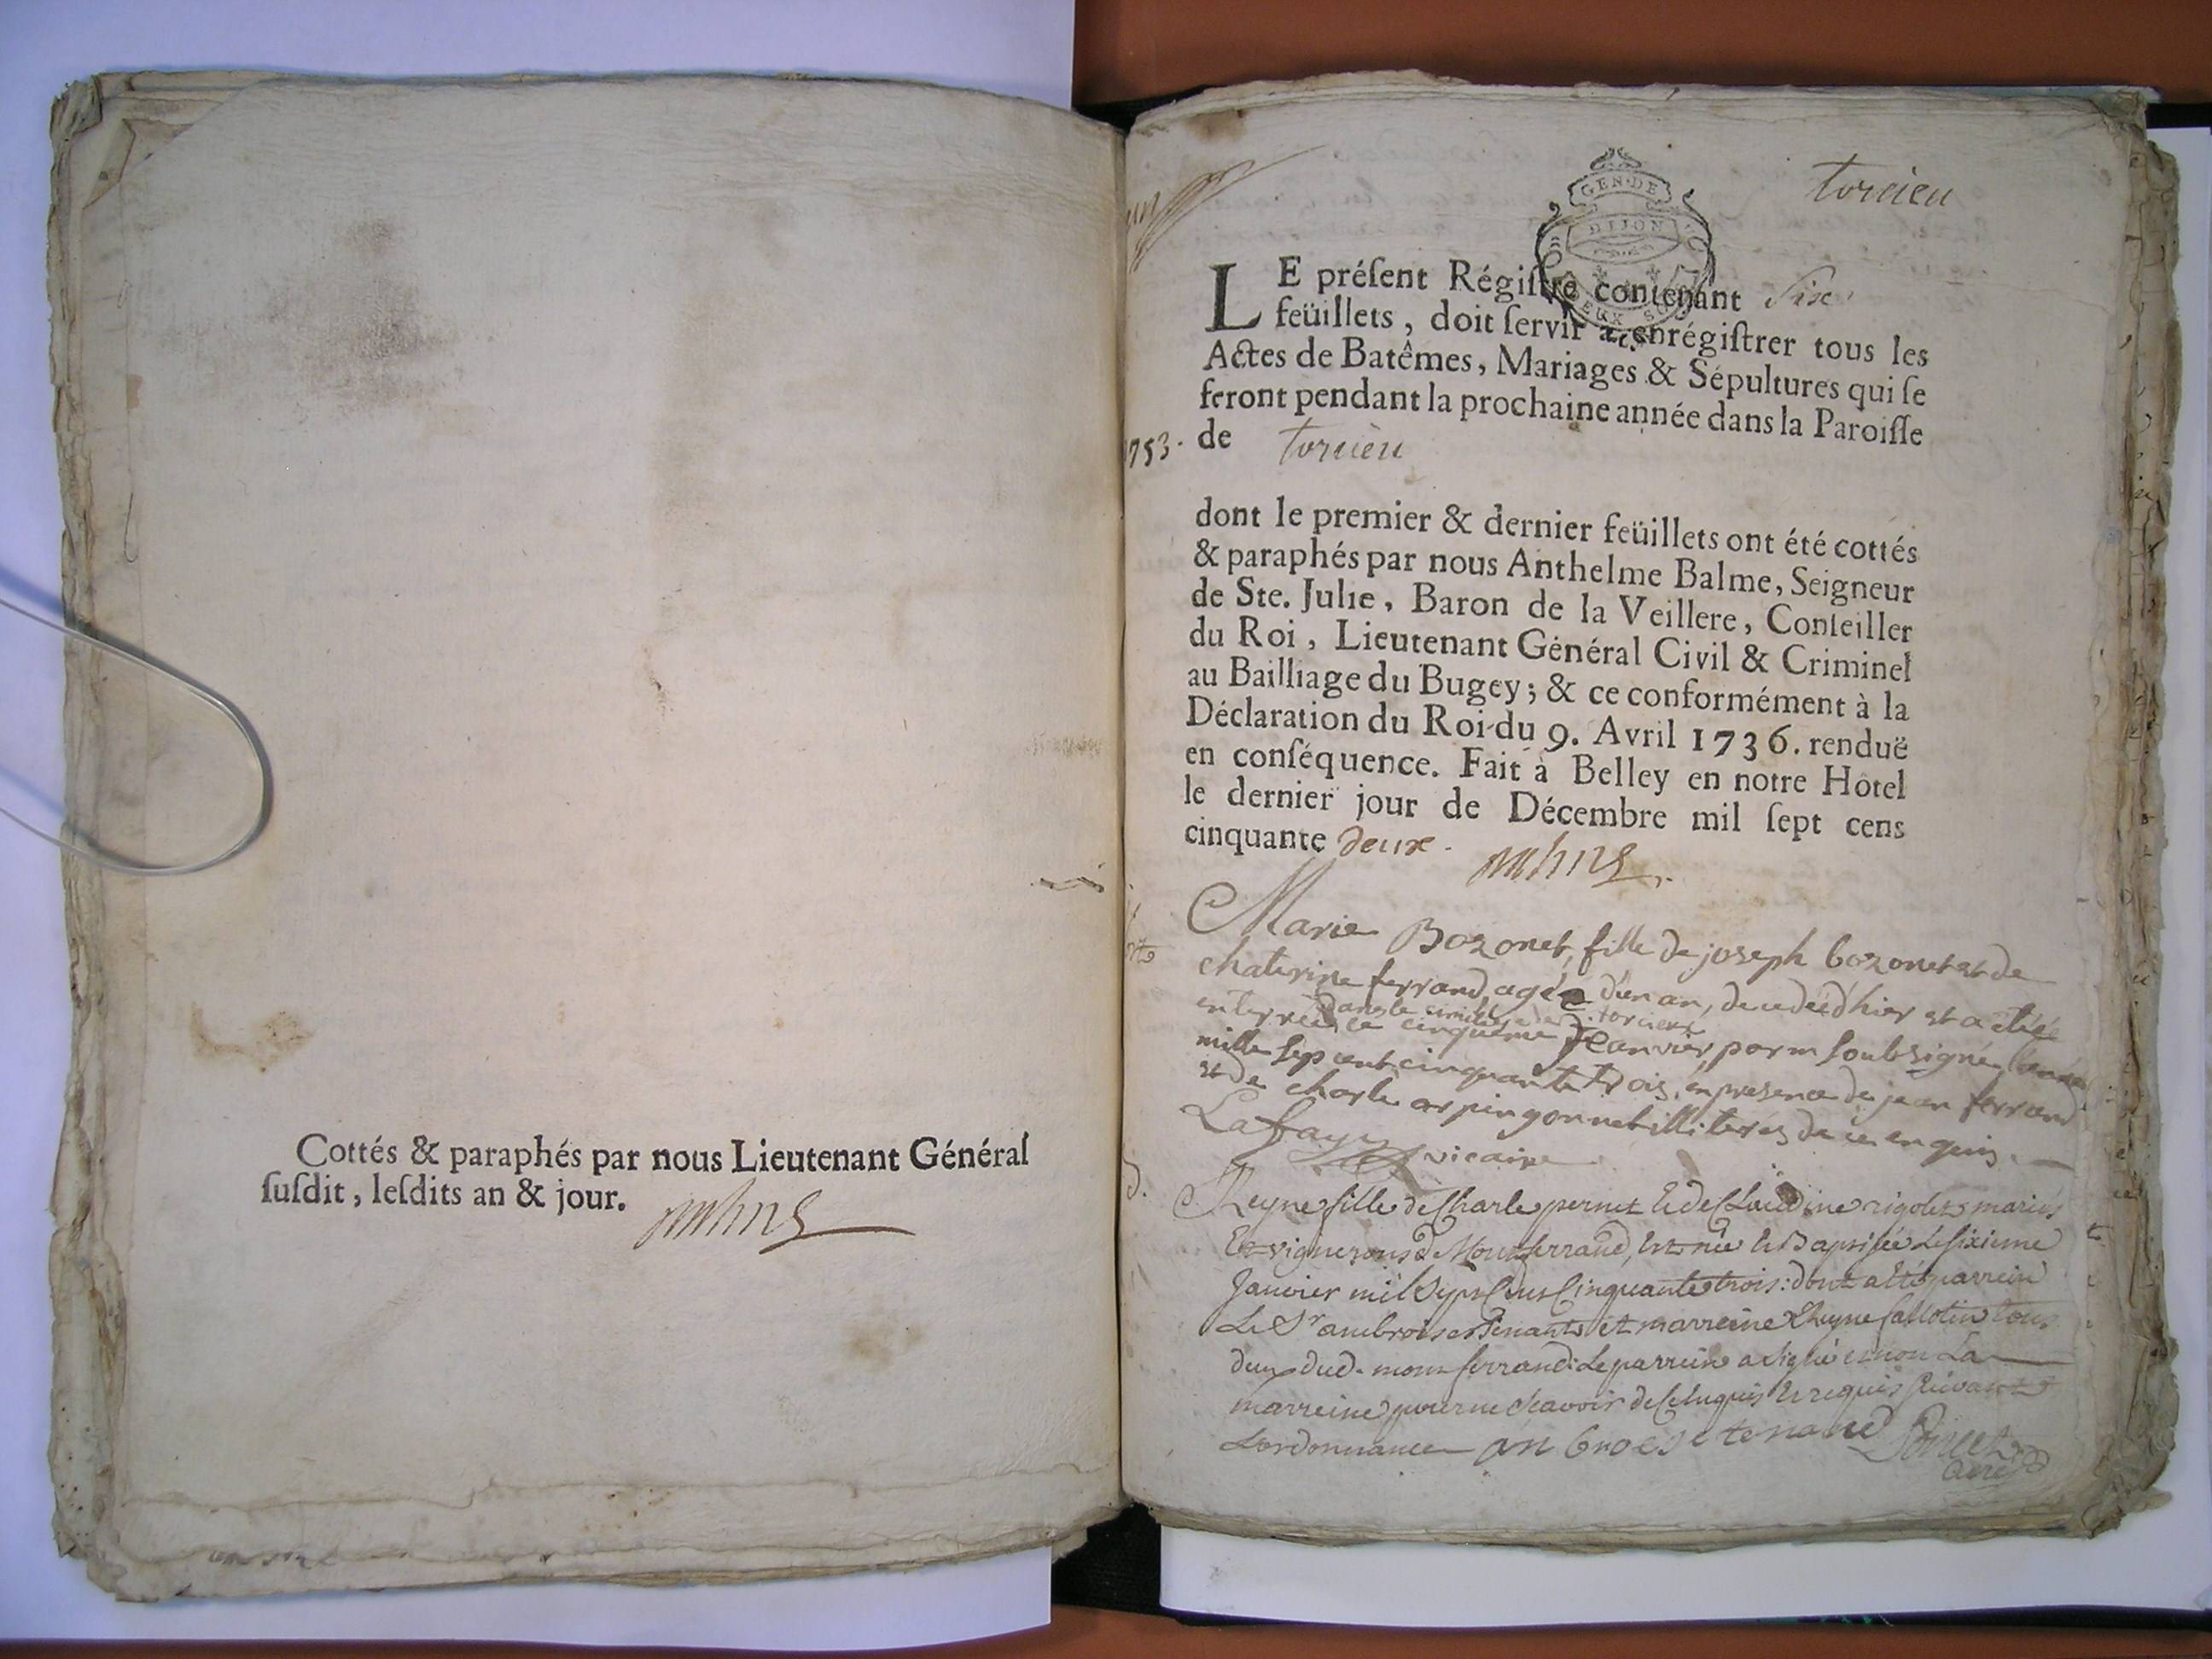 Cottés & paraphés par nous Lieutenant Général
ſuſdit, leſdits an & jour.
torcieu
GEN·DE
DIJON
LE préſent Régiſtre contenant Six
feüillets, doit ſervir à enrégiſtrer tous les
Actes de Batêmes, Mariages & Sépultures qui ſe
feront pendant la prochaine année dans la Paroiſſe
1753. de torcieu
dont le premier & dernier feüillets ont été cottés
& paraphés par nous Anthelme Balme, Seigneur
de Ste. Julie, Baron de la Veillere, Conſeiller
du Roi, Lieutenant Général Civil & Criminel
au Bailliage du Bugey; & ce conformément à la
Déclaration du Roi du 9. Avril 1736. renduë
en conſéquence. Fait à Belley en notre Hôtel
le dernier jour de Décembre mil ſept cens
cinquante deux.
Marie Bozonet, fille de joseph bozonet et de
chaterine ferrand, agée d'un an, decedeé d'hier et a étéé
dans le cimetiere de torcieu
enterreé le cinquieme Jeanvier, par m soubsigné
mille sep cent cinquante trois, en presence de jean ferrand
et de charle arpin gonnet illiterés de ce enquis.
Lafay vicaire
Reyne fille de Charle pernet Et de Claudine rigolet mariés
Et vignerons de Montferrand, Est née Et Baptisée Le sixieme
Janvier mil Sept Cens Cinquante trois: dont a Eté parrein
Le Sr ambroise Tenant et marreine Rheyne fallotin tous
deux dud. montferrand: Le parrein a signé et non La
marreine pour ne Scavoir de Ce Enquis Et requis suivant
L'ordonnance an broese tenand
Curé